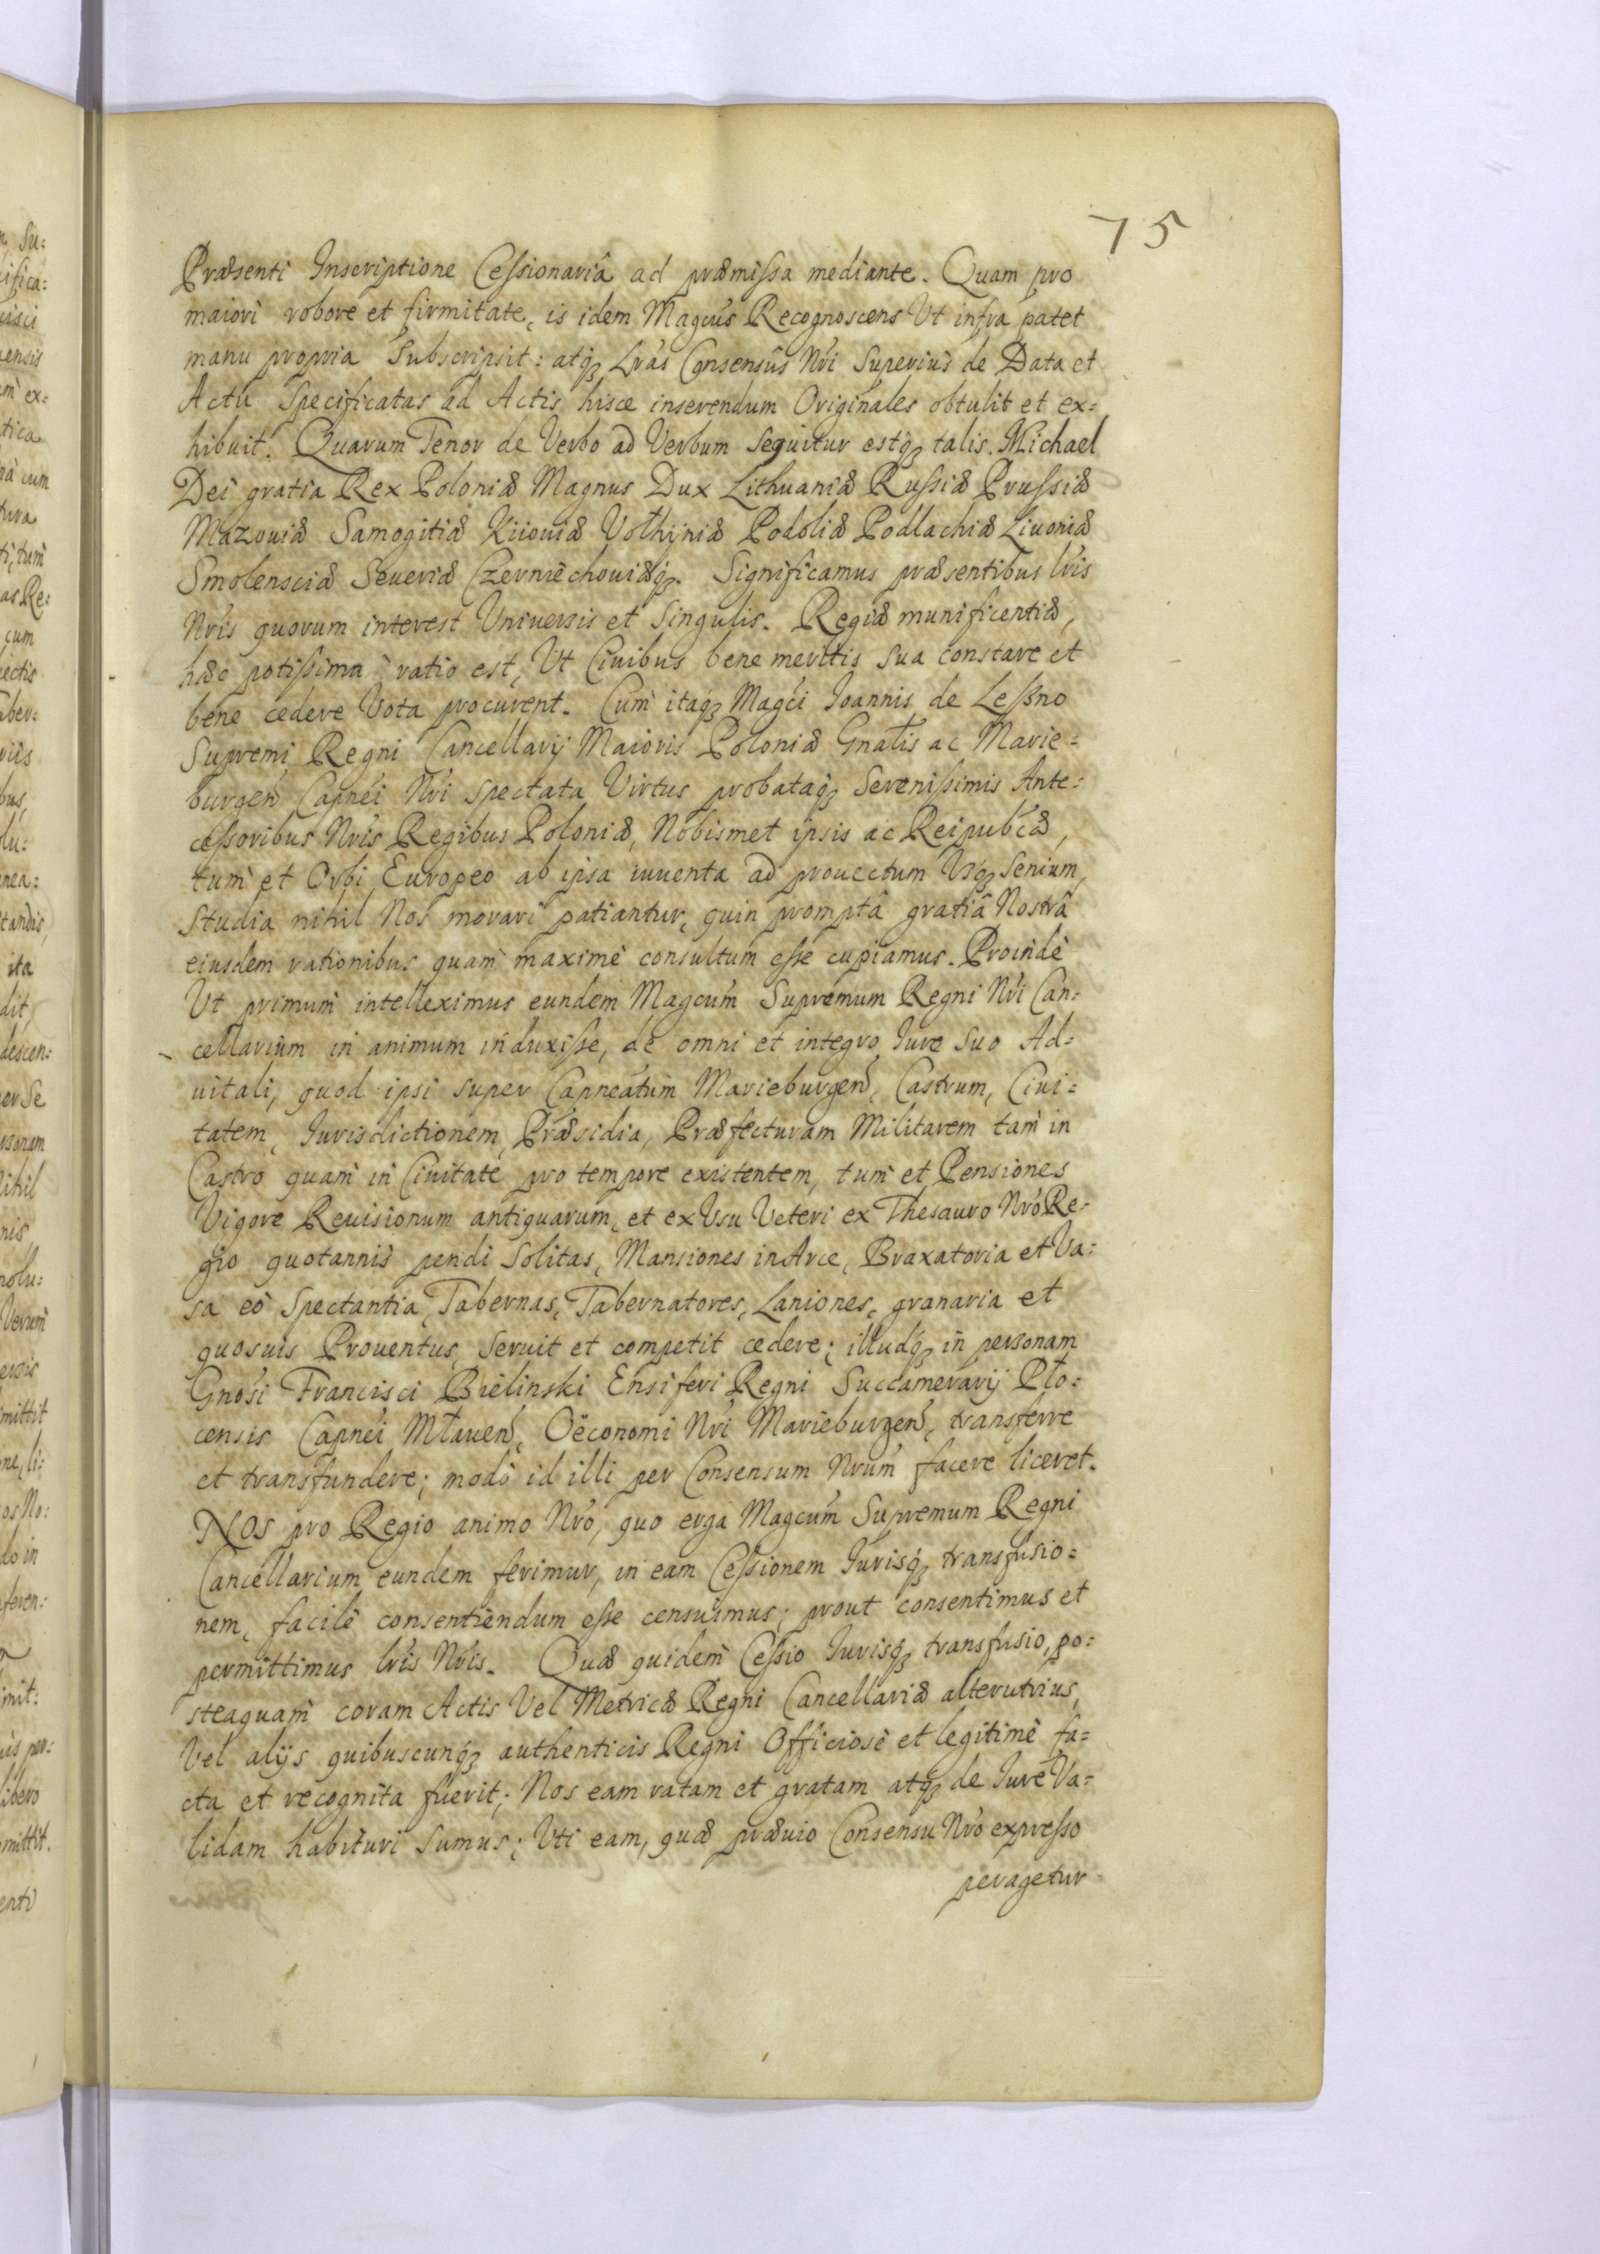 75
Præsenti Inscriptione Cessionariâ ad præmissa mediante. Quam pro
maiori robore et firmitate, is idem Magcus Recognoscens Ut infra patet
manu propria Subscripsit: atq́ꝫ Lras Consensûs Nri Superius de Data et
Actu Specificatas ad Actis hisce inserendum Originales obtulit et ex=
hibuit. Quarum Tenor de Verbo ad Verbum Sequitur estq́ꝫ talis. Michael
Dei gratia Rex Poloniæ Magnus Dux Lithuaniæ Russiæ Prussiæ
Mazouiæ Samogitiæ Kiiouiæ Volhyniæ Podoliæ Podlachiæ Liuoniæ
Smolensciæ Seueriæ Czerniechouiæq́ꝫ. Significamus præsentibus lris
Nris quorum interest Uniuersis et Singulis. Regiæ munificentiæ,
hæc potissima ratio est, Ut Ciuibus bene meritis sua constare et
bene cedere Vota procurent. Cum itaq́ꝫ Magci Joannis de Leßno
Supremi Regni Cancellarij Maioris Poloniæ Gnalis ac Marie=
burgeń Capnei Nri spectata Virtus probataq́ꝫ Serenissimis Ante=
cessoribus Nris Regibus Poloniæ, Nobismet ipsis ac Reipublcæ,
tum et Orbi Europeo ab ipsa iuuenta ad prouectum Usq́ꝫ Senium,
Studia nihil Nos morari patiantur, quin promptâ gratiâ Nostrâ
eiusdem rationibus quam maximè consultum esse cupiamus. Proindè
Ut primum intelleximus eundem Magcum Supremum Regni Nri Can=
cellarium in animum induxisse, de omni et integro Jure Suo Ad=
uitali, quod ipsi super Capneatum Marieburgeń, Castrum, Ciui=
tatem, Jurisdictionem, Præsidia, Præfecturam Militarem tam in
Castro quam in Ciuitate pro tempore existentem, tum et Pensiones
Vigore Reuisionum antiquarum, et ex Usu Veteri ex Thesauro Nro Re=
gio quotannis pendi solitas, Mansiones in Arce, Braxatoria et Va=
sa eò Spectantia, Tabernas, Tabernatores, Laniones, granaria et
quosuis Prouentus, seruit et competit cedere; illudq́ꝫ in personam
Gnosi Francisci Bielinski Ensiferi Regni Succamerarij Plo=
censis Capnei Mławeń, Oëconomi Nri Marieburgeń, transferre
et transfundere; modò id illi per Consensum Nrum facere liceret.
NOS pro Regio animo Nro, quo erga Magcum Supremum Regni
Cancellarium eundem ferimur, in eam Cessionem Jurisq́ꝫ transfusio=
nem, facilè consentiendum esse censuimus; prout consentimus et
permittimus lris Nris. Quæ quidem Cessio Jurisq́ꝫ transfusio, po=
steaquam coram Actis Vel Metricæ Regni Cancellariæ alterutrius,
Vel alijs quibuscunq́ꝫ authenticis Regni Officiosè et legitimè fa=
cta et recognita fuerit; Nos eam ratam et gratam atq́ꝫ de Jure Va=
lidam habituri sumus; Uti eam, quæ præuio Consensu Nro expresso
peragetur